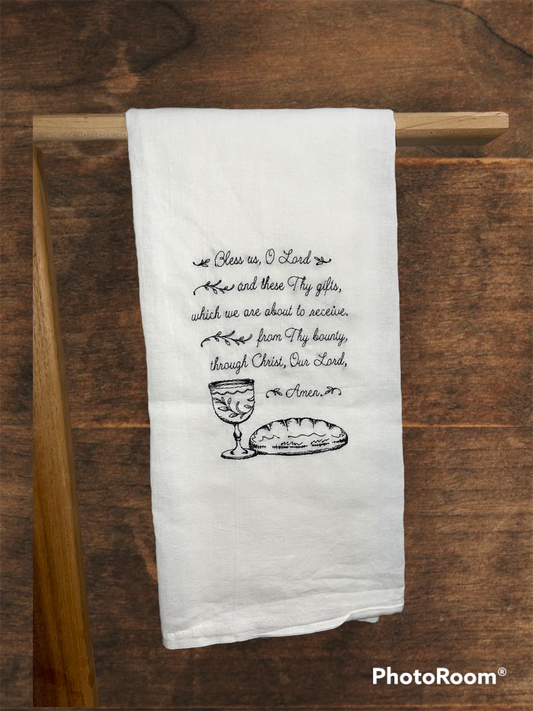 Bless us, O Lord
and these Thy gifts,
which we are about to receive.
from Thy bounty,
through Christ, Our Lord,
Amen.
PhotoRoom®